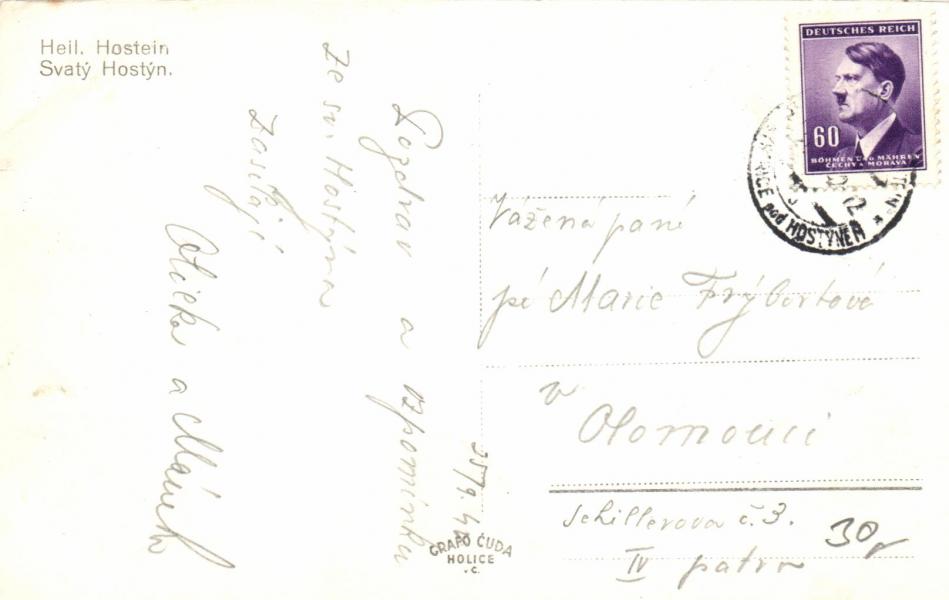 Heil. Hostein
Svatý Hostýn.
Pozdrav a vzpomínku
ze sv. Hostýna
zasílají
a
25/9. 42
GRAFO ČUDA
HOLICE
v.C.
DEUTSCHES REICH
60
BÖHMEN UND MÄHREN
ČECHY A MORAVA
pod HOSTÝNEM
Vážená paní
pí Marie Frýbortová
v
Olomouci
Schillerova č. 3.
IV patro
30